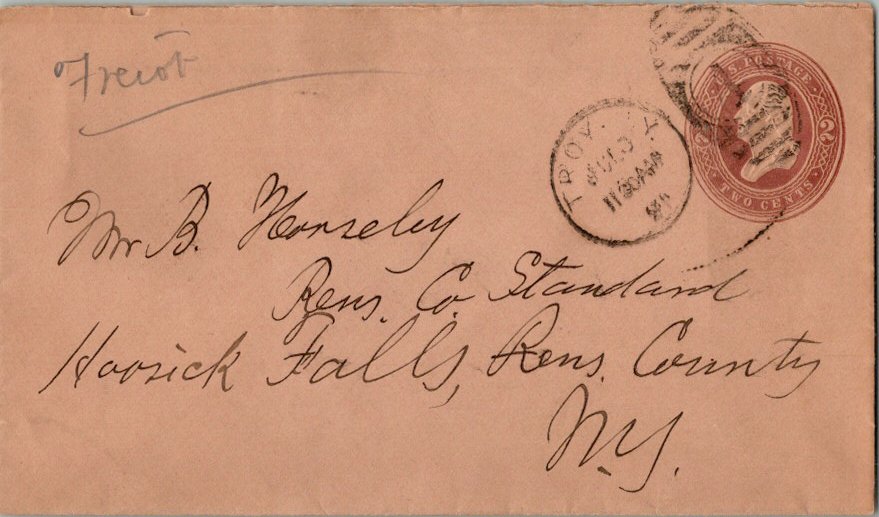 Freiot
U.S. POSTAGE
2
TWO CENTS
TROY. N.Y.
JUL
11 30 AM
Mr B. Horseley
Rens. Co Standard
Hoosick Falls, Rens. County
N.Y.